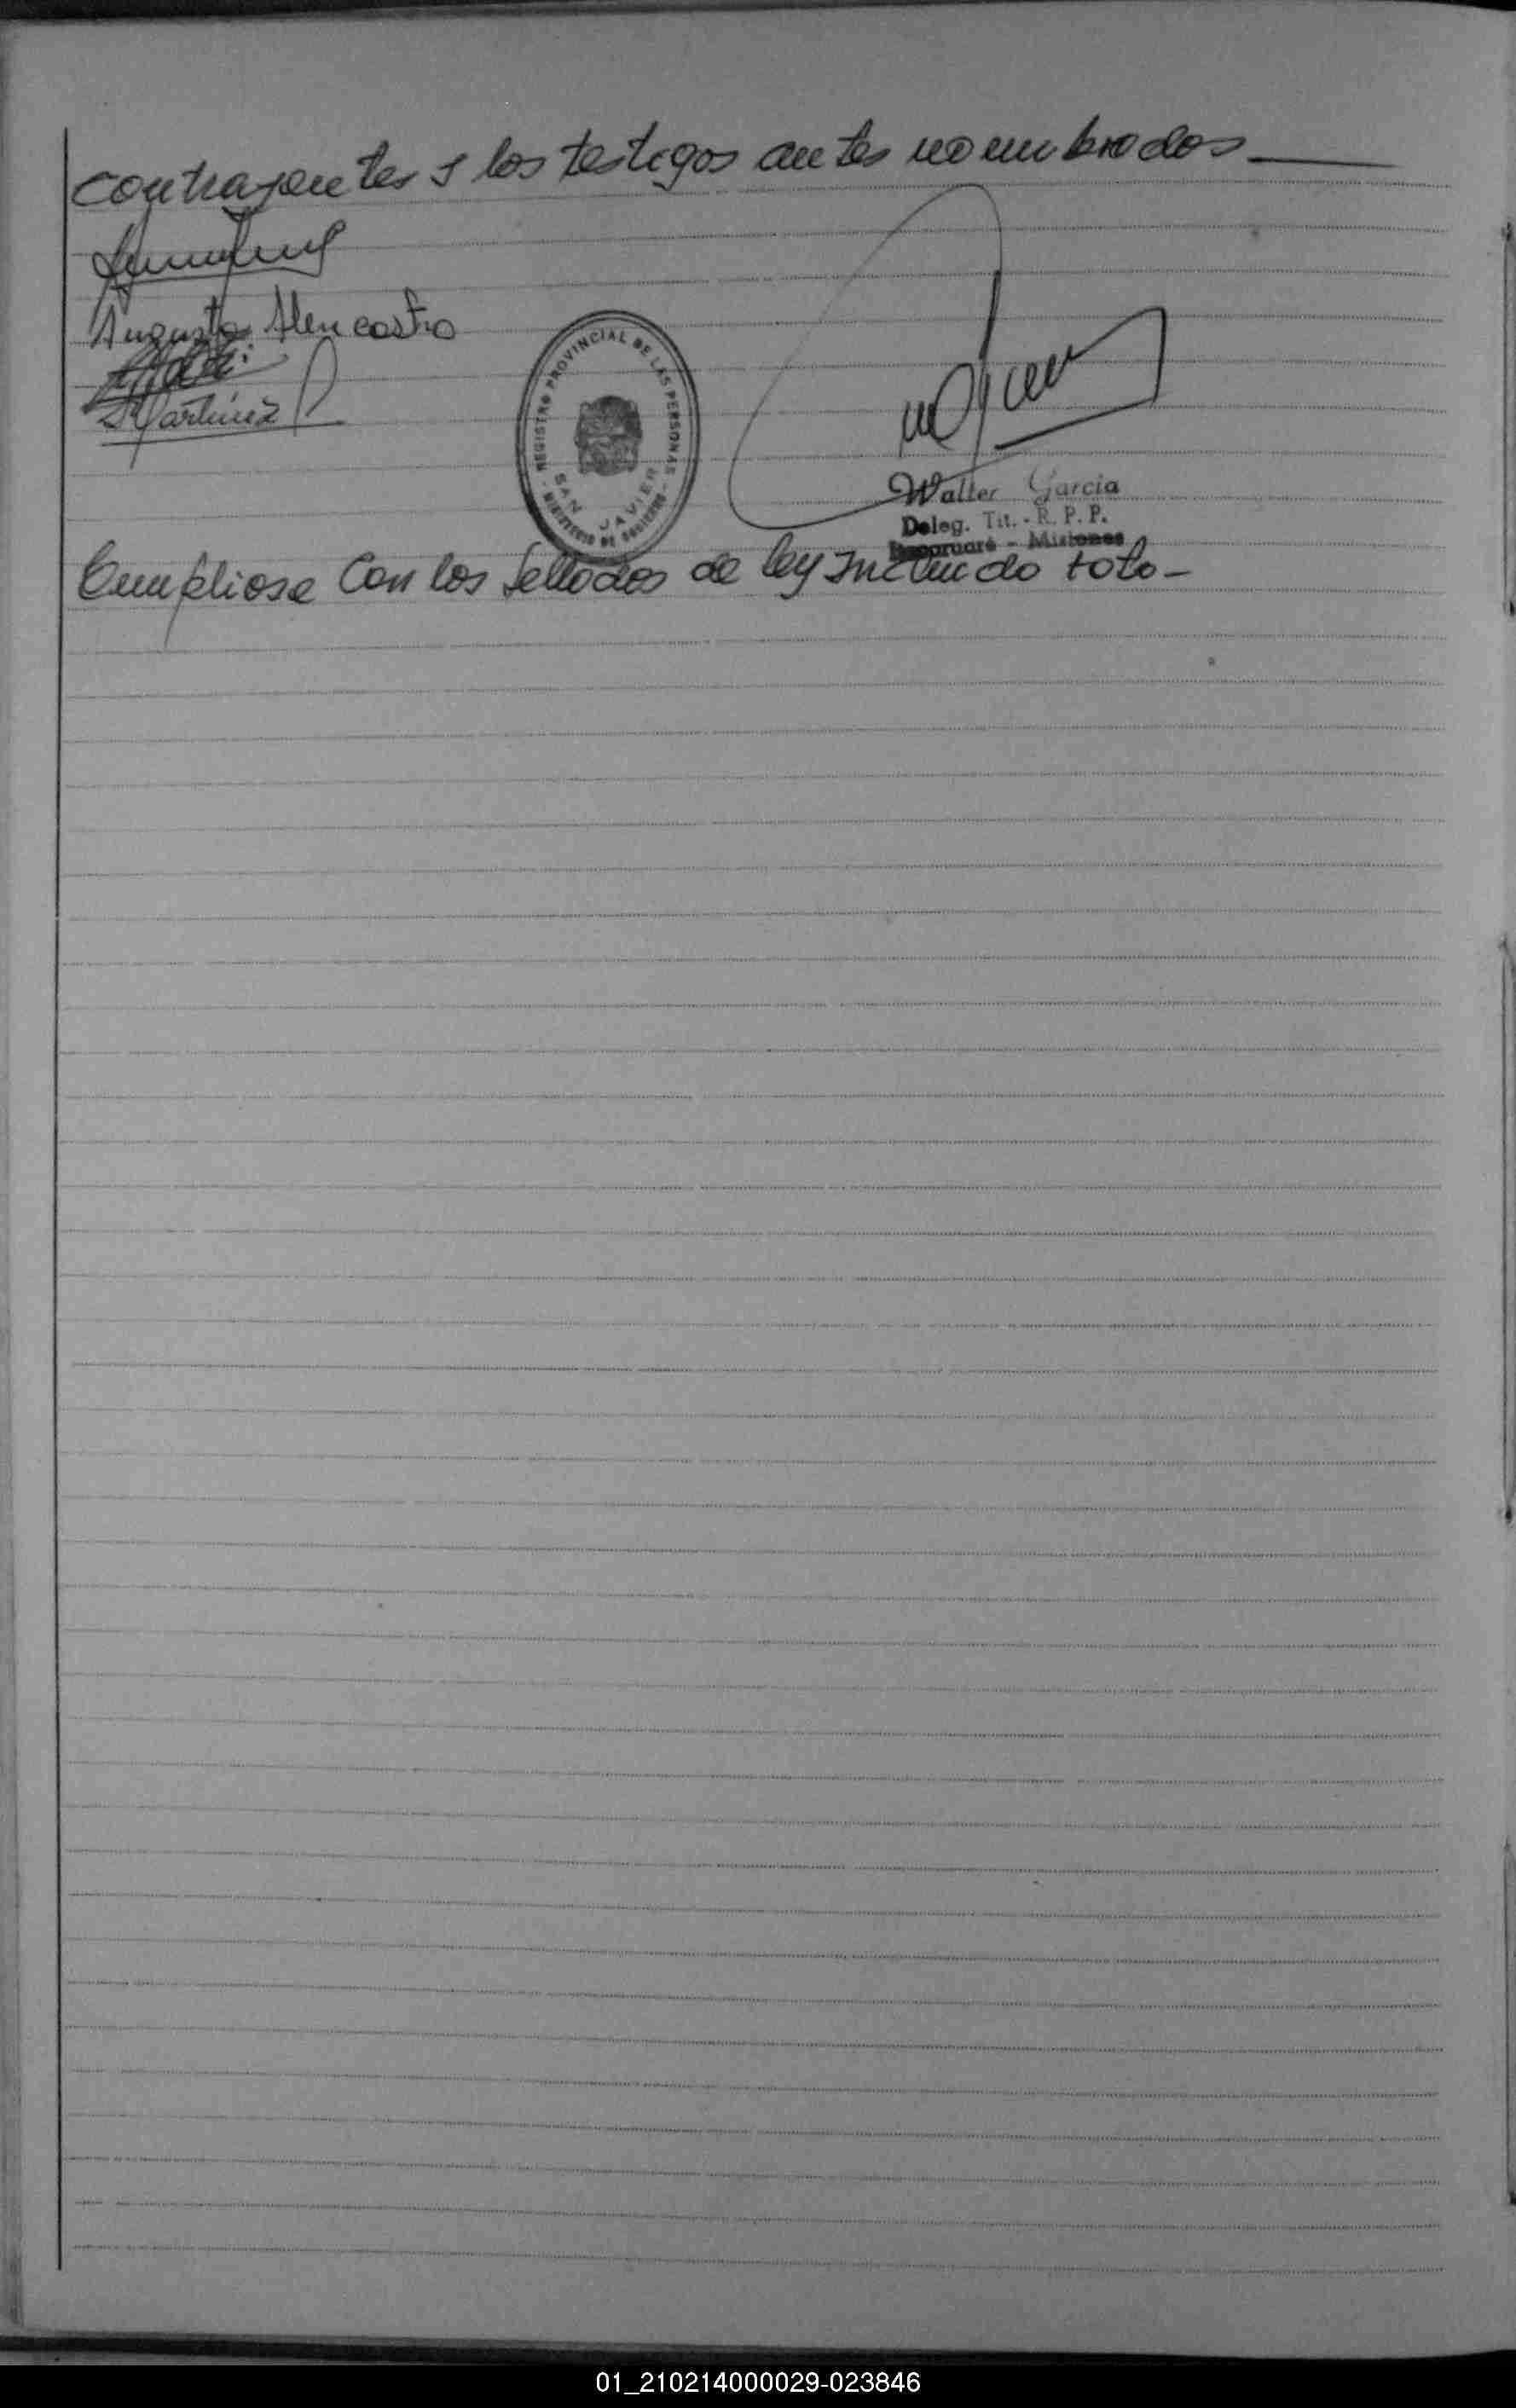 contrayentes y los testigos antes nombrados
Augusto Alencastro
Martinez
REGISTRO PROVINCIAL DE LAS PERSONAS
SAN JAVIER
MINISTERIO DE GOBIERNO
Walter Garcia
Deleg. Tit. - R. P. P.
- Misiones
Cumpliose Con los Sellados de ley
01_210214000029-023846